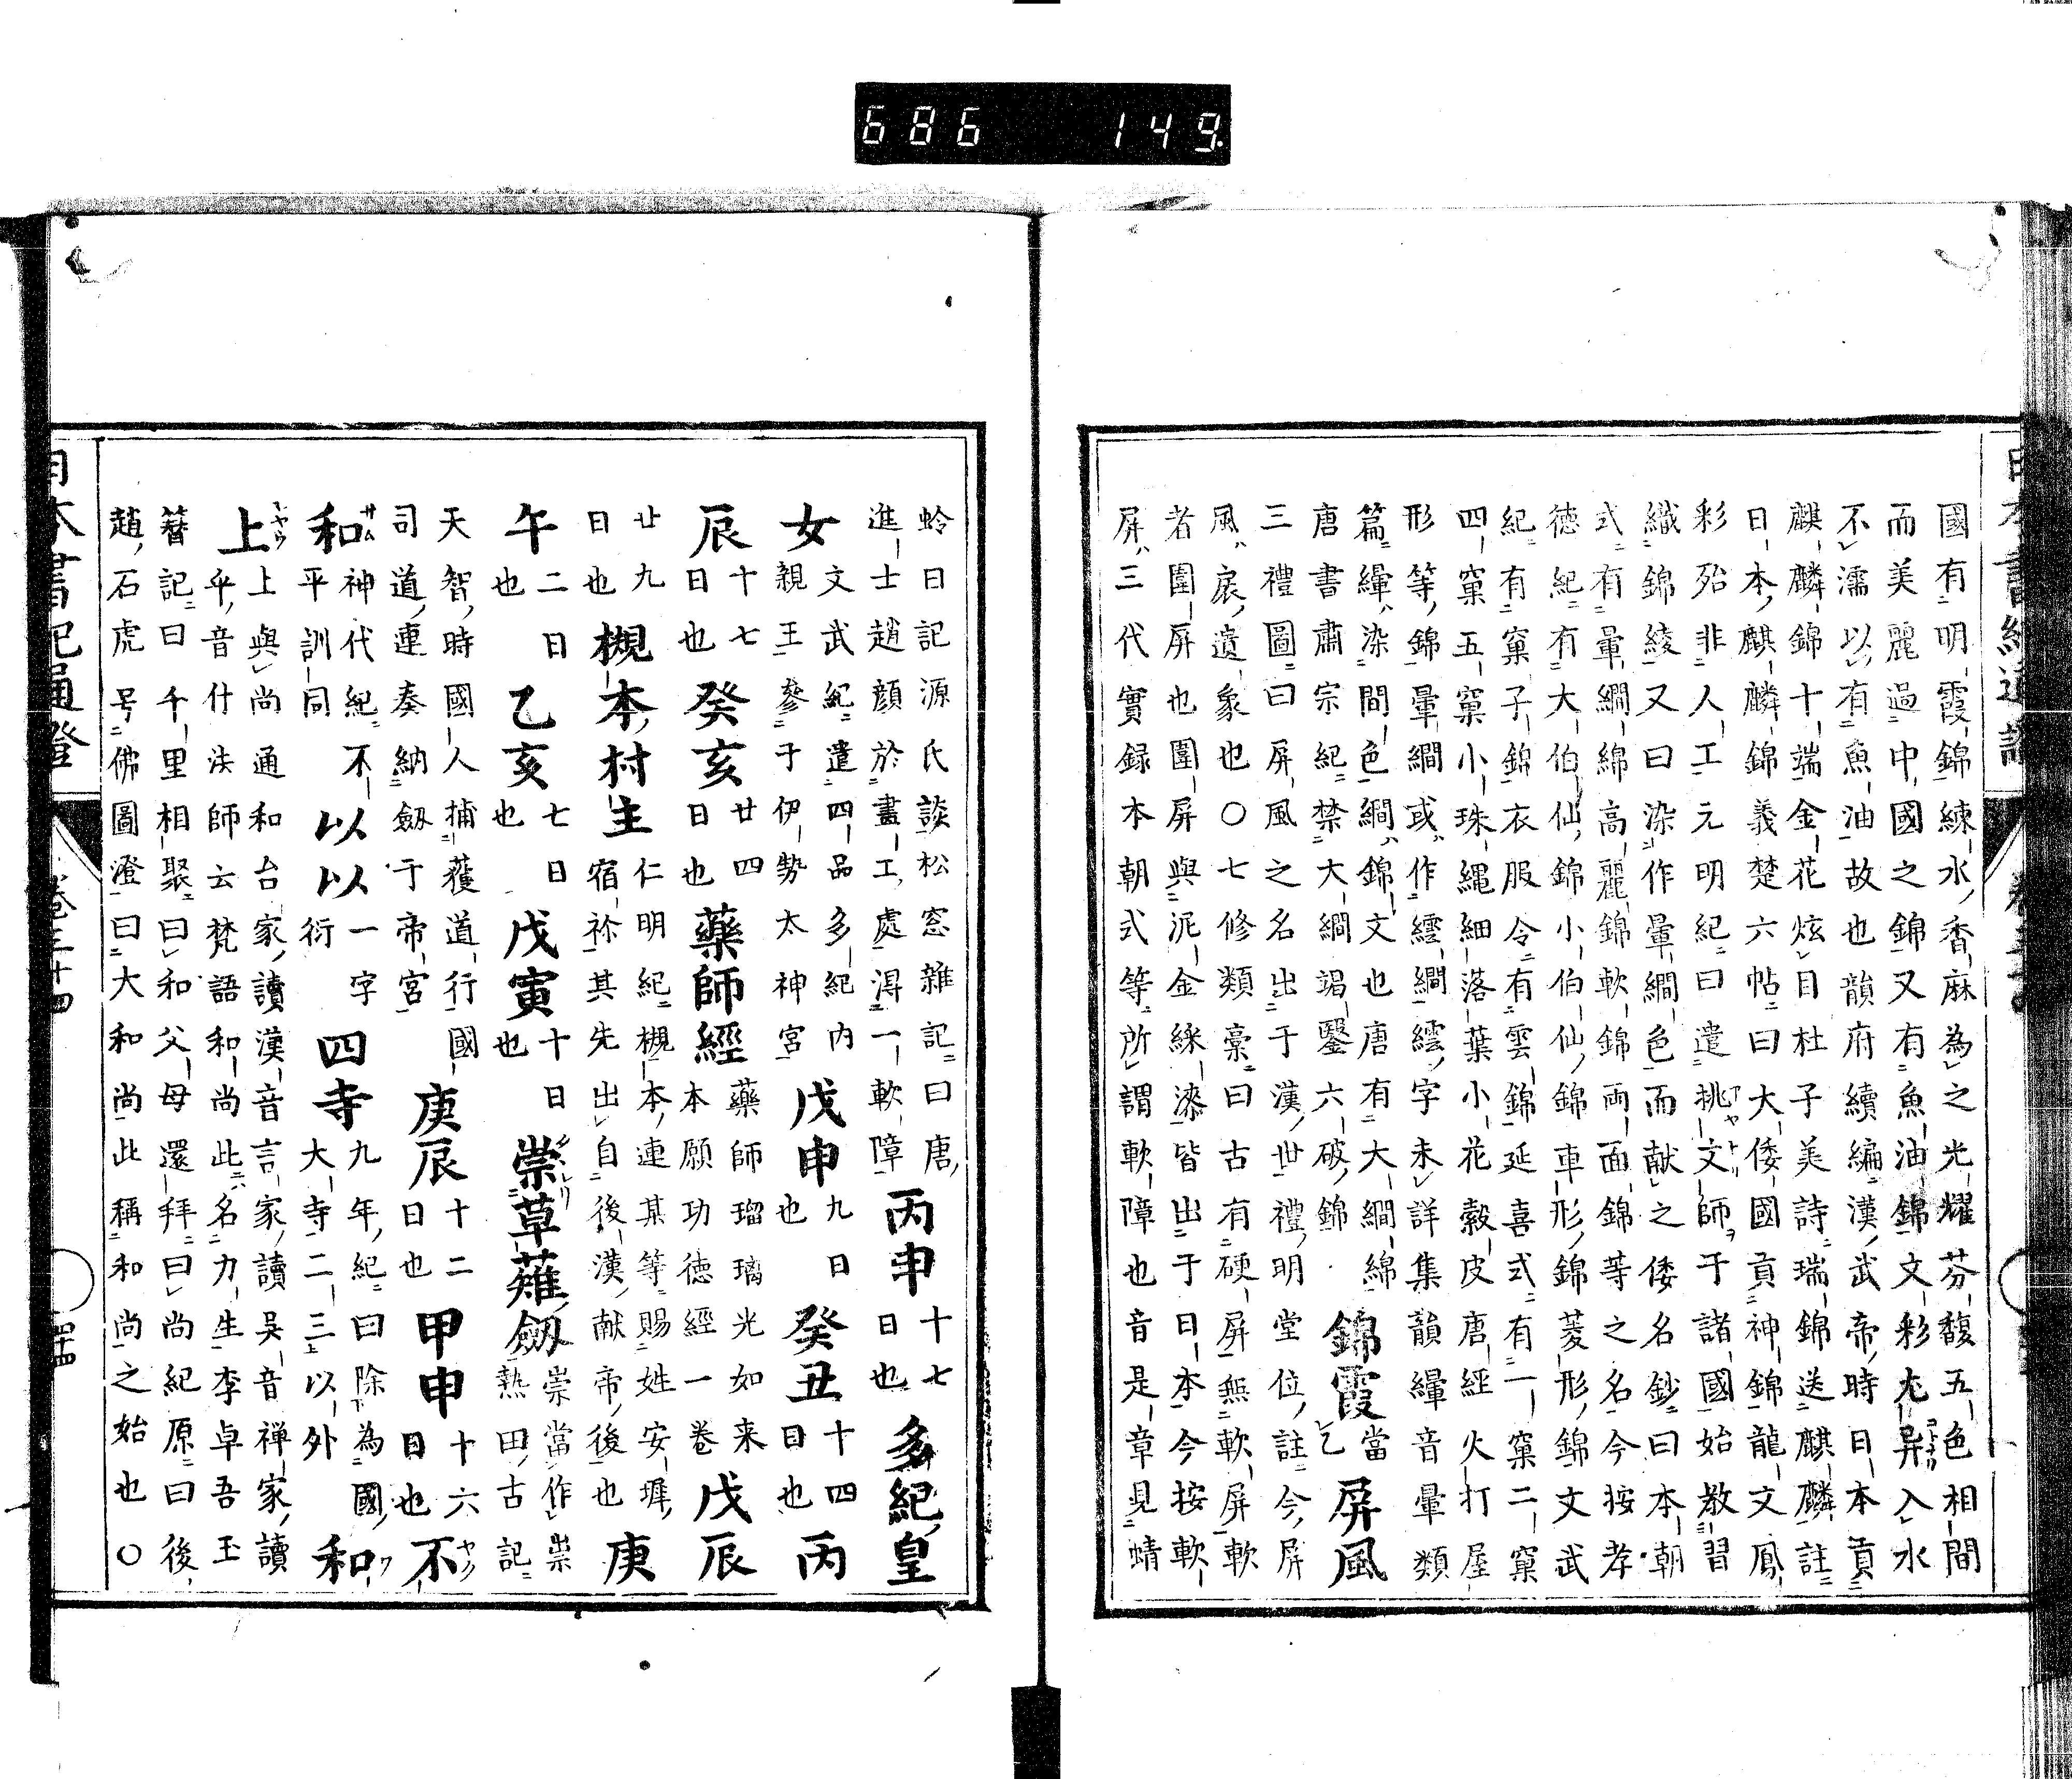 686 149
國有明霞錦練水香麻為之光耀芬馥五色相間
而美麗過中國之錦又有魚油錦文彩尤異入水
不濡以有魚油故也韻府續編漢武帝時日本貢
麒麟錦十端金花炫目杜子美詩瑞錦送麒麟註
日本麒麟錦義楚六帖曰大倭國貢神錦龍文鳳
彩殆非人工元明紀曰遣挑文師于諸國始教習
織錦綾又曰染作暈繝色而献之倭名鈔曰本朝
式有暈繝錦高麗錦軟錦両面錦等之名今按孝
徳紀有大伯仙錦小伯仙錦車形錦菱形錦文武
紀有窠子錦衣服令有雲錦延喜式有一窠二窠
四窠五窠小珠縄細落葉小花縠皮唐經火打屋
形等錦暈繝或作繧繝繧字未詳集韻縪音暈類
篇縪染間色繝錦文也唐有大繝綿
唐書肅宗紀禁大繝竭鑿六破錦
錦霞當乙 屏風
三禮圖曰屏風之名出于漢世禮明堂位註今屏
風扆遺象也〇七修類稾曰古有硬屏無軟屏軟
者圍屏也圍屏與泥金綵漆皆出于日本今按軟
屏三代實録本朝式等所謂軟障也音是章見蜻
蛉日記源氏談松窓雜記曰唐
進士趙顔於畫工處淂一軟障
丙申 十七日也 多紀皇
女 文武紀遣四品多紀内親王參于伊勢太神宮 戊申 九日也 癸丑 十四日也 丙
辰 十七日也 癸亥 廿四日也 藥師經 藥師瑠璃光如来本願功徳經一卷 戊辰
廿九日也 槻本村主 仁明紀槻本連某等賜姓安墀宿祢其先出自後漢献帝後也 庚
午 二日也 乙亥 七日也 戊寅 十日也 崇草薙劔 崇當作祟熱田古記
天智時國人捕獲道行國
司道連奏納劔于帝宮
庚辰 十二日也 甲申 十六日也 不
和 神代紀不平訓同 以以 一字衍 四寺 九年紀曰除為國大寺二三以外 和
上 上與尚通和台家讀漢音言家讀吳音禅家讀乎音什法師云梵語和尚此名力生李卓吾玉
簪記曰千里相聚曰和父母還拜曰尚紀原曰後
趙石虎号佛圖澄曰大和尚此稱和尚之始也〇
日本書紀通證 卷三十四